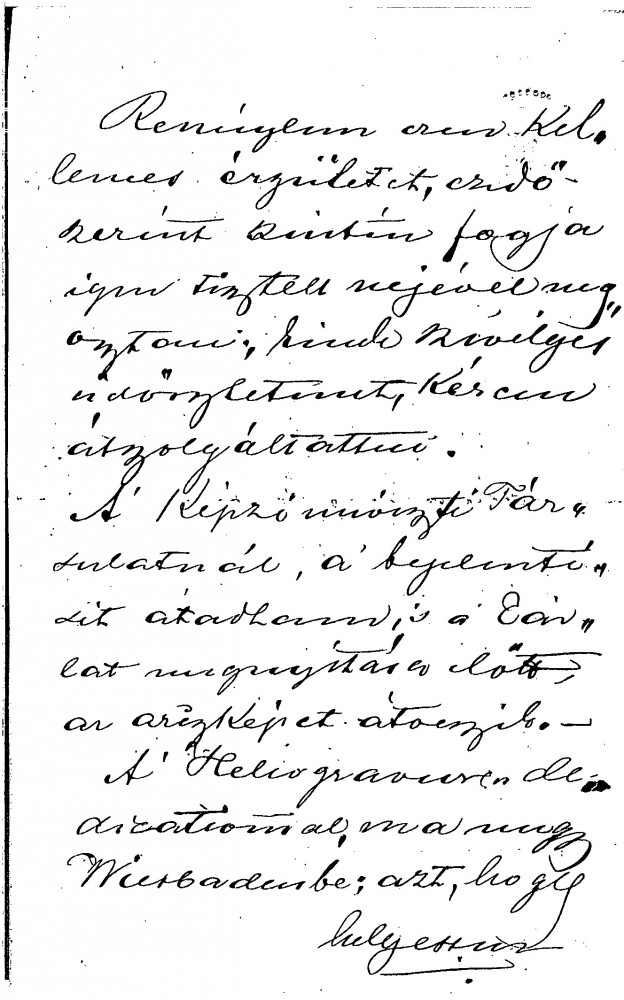 Reménylem ezen kel„
lemes érzületet, ezidő-
szerint szintén fogja
igen tisztelt nejével meg„
osztani; kinek szivélyes
üdvözletemet, kérem
átszolgáltatni.
A' Képzőmüvészti Tár„
sulatnál, a' bejelenté„
sit átadtam, 's a' Tár„
lat megnyitása előtt,
az arczképet átveszik. —
A' Heliogravure, de„
dicatiomal, ma megy
Wiesbadenbe; azt, hogy
helyessen